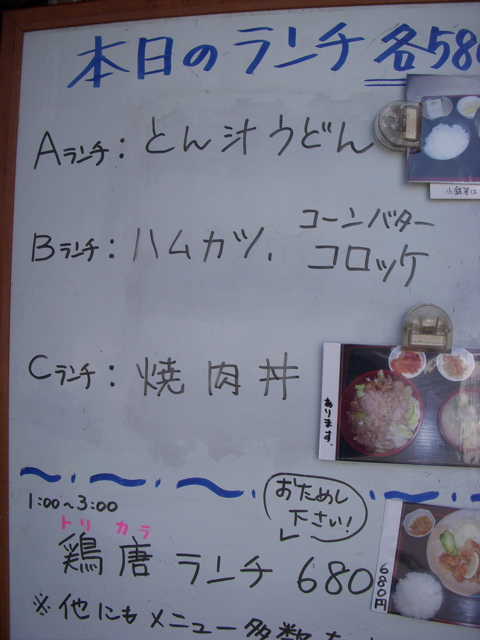 本日のランチ 各580
Aランチ：とん汁うどん
Bランチ：ハムカツ、コーンバターコロッケ
Cランチ：焼肉丼
あります。
1:00〜3:00
おためし
下さい!
トリ カラ
鶏唐 ランチ 680
680円
※他にもメニュー多数